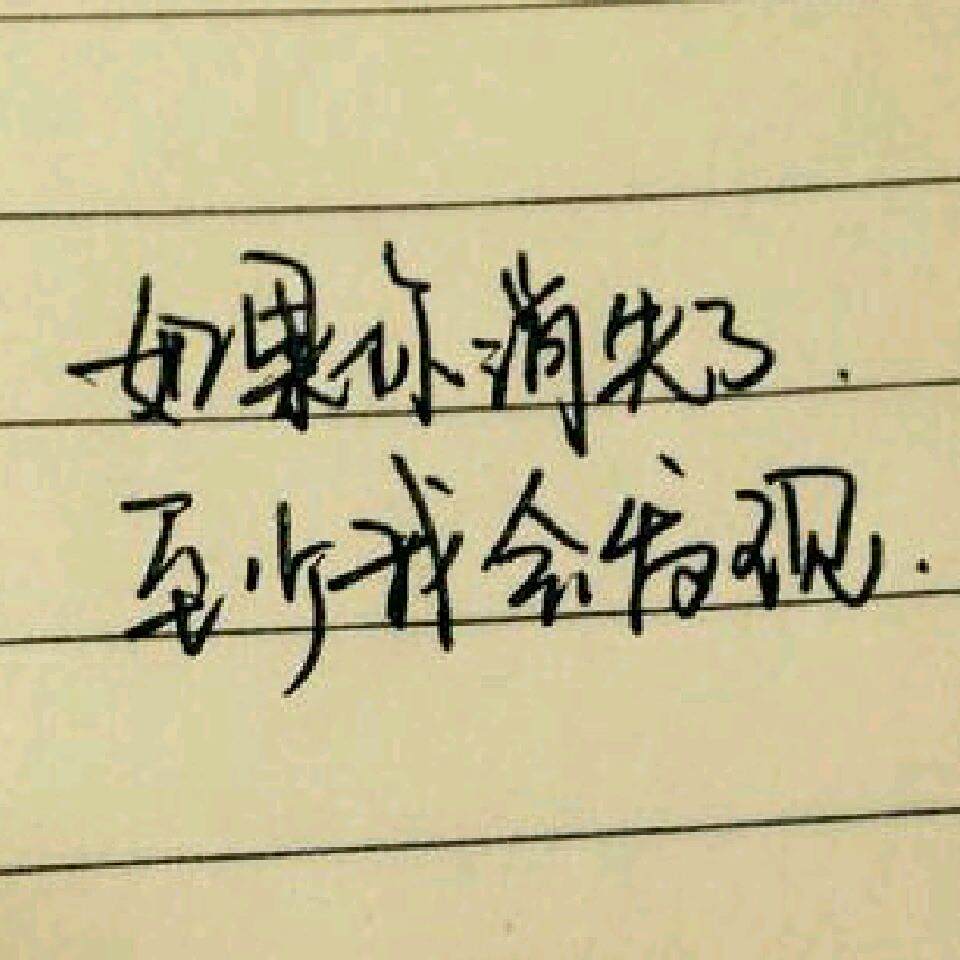 如果你消失了.
至少我会发现.